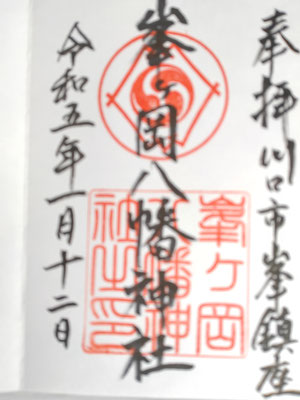 奉拝 川口市峯鎮座
峯ヶ岡八幡神社
峯ヶ岡
八幡神
社之印
令和五年一月十二日